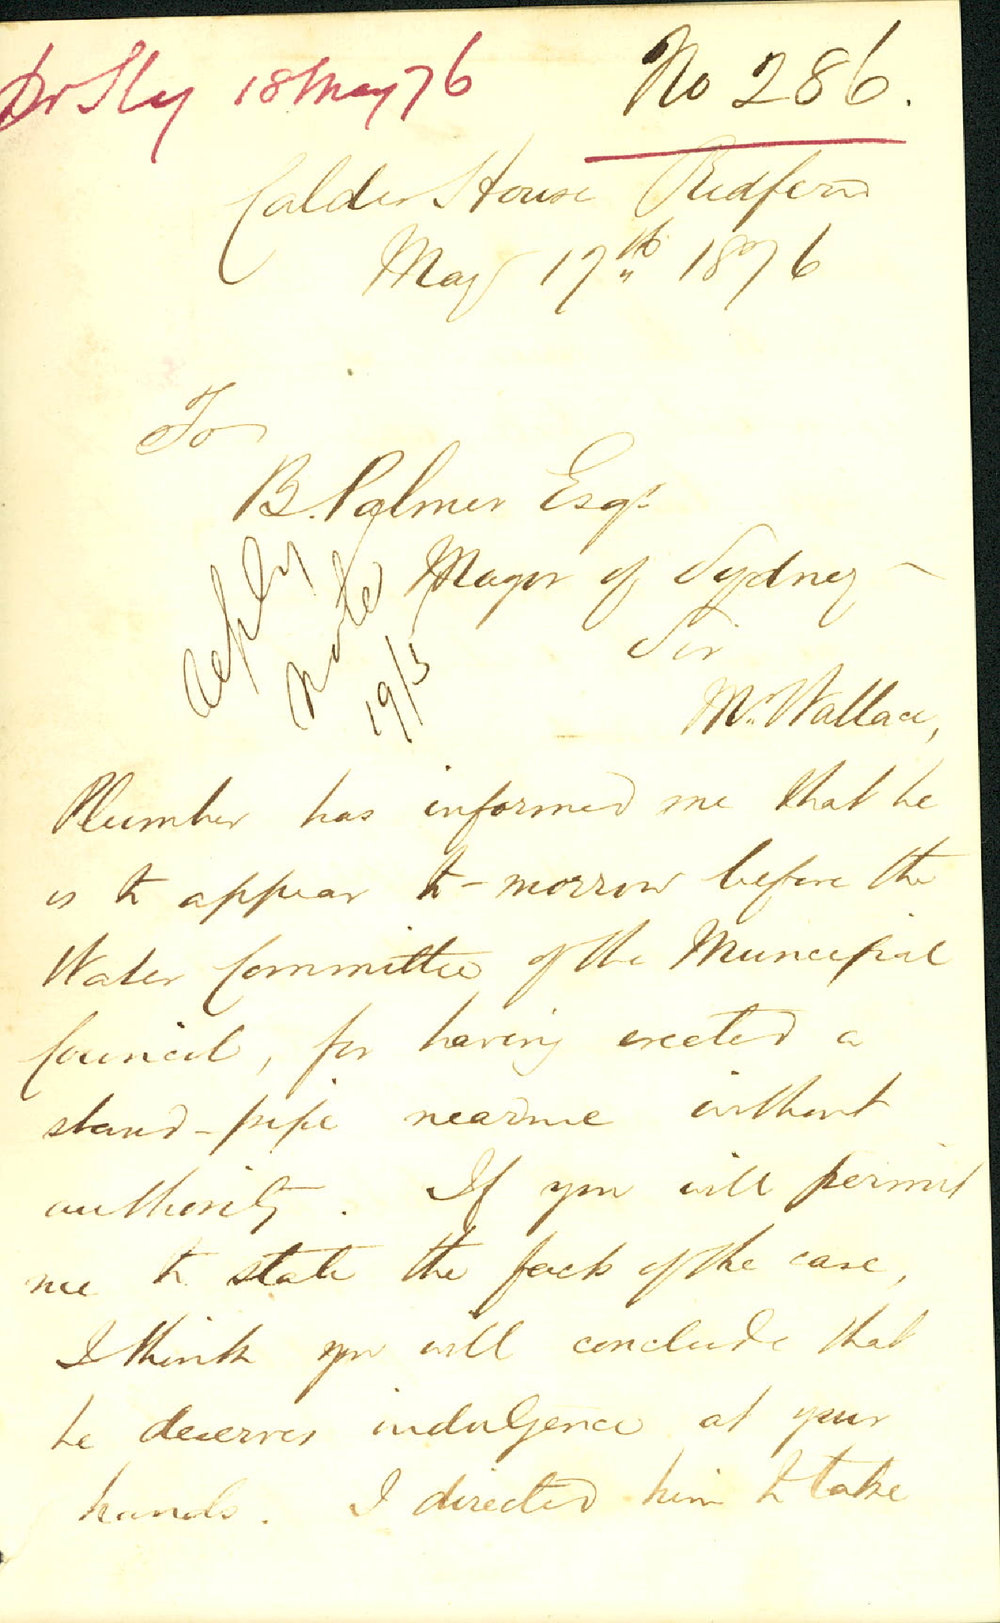 Dr Sly 18 May 76
No 286.
Calder House Redfern
May 17th 1876
To
B. Palmer Esqr
Mayor of Sydney -
Sir
reply
note
19/5
Mr. Wallace,
Plumber has informed me that he
is to appear to-morrow before the
Water Committee of the Municipal
Council, for having erected a
stand-pipe near me without
authority. If you will permit
me to state the facts of the case,
I think you will conclude that
he deserves indulgence at your
hands. I directed him to take